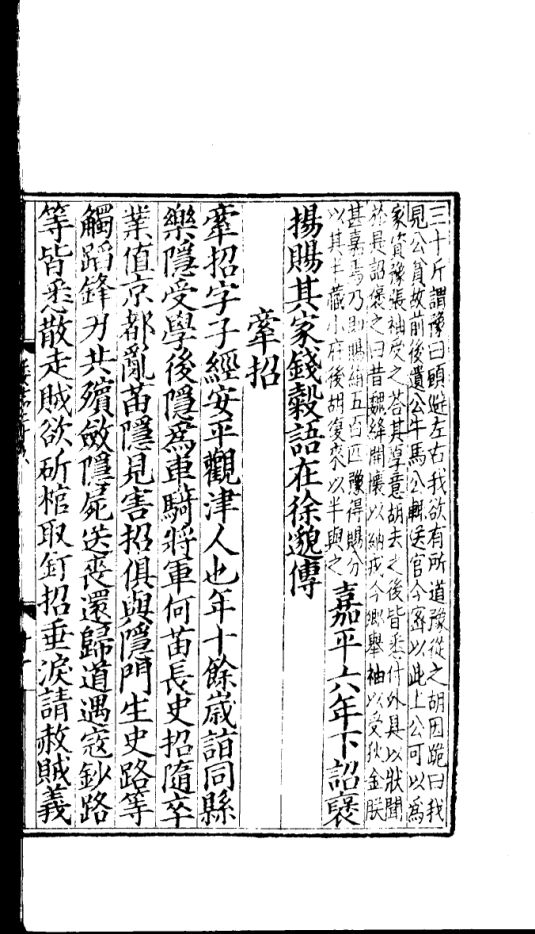 三十斤謂豫曰願避左右我欲有所道豫從之胡因跪曰我
見公貧故前後遺公牛馬公輒送官今密以此上公可以為
家資豫張袖受之荅其厚意胡去之後皆悉付外具以狀聞
於是詔褒之曰昔魏絳開懷以納戎今卿舉袖以受狄金朕
甚嘉焉乃即賜絹五百匹豫得賜分
以其半藏小府後胡復来以半與之
嘉平六年下詔褒
揚賜其家錢穀語在徐邈傳
牽招
牽招字子經安平觀津人也年十餘歲詣同縣
樂隱受學後隱爲車騎將軍何苗長史招隨卒
業值京都亂苗隱見害招俱與隱門生史路等
觸蹈鋒刃共殯斂隱屍送喪還歸道遇寇鈔路
等皆悉散走賊欲斫棺取釘招垂淚請赦賊義